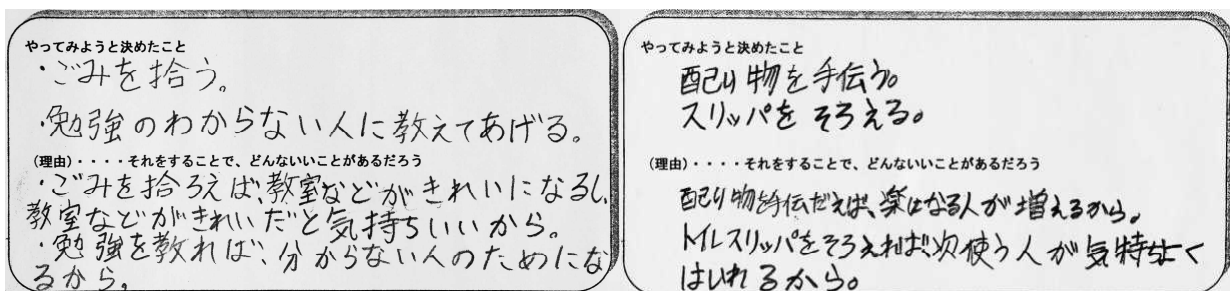 やってみようと決めたこと
・ごみを拾う。
・勉強のわからない人に教えてあげる。
(理由)・・・・それをすることで、どんないいことがあるだろう
・ごみを拾ろえば、教室などがきれいになるし、
教室などがきれいだと気持ちいいから。
・勉強を教れば、分からない人のためにな
るから。
やってみようと決めたこと
配り物を手伝う。
スリッパをそろえる。
(理由)・・・・それをすることで、どんないいことがあるだろう
配り物を手伝だえば、楽になる人が増えるから。
トイレスリッパをそろえれば、次使う人が気持ちよく
はいれるから。